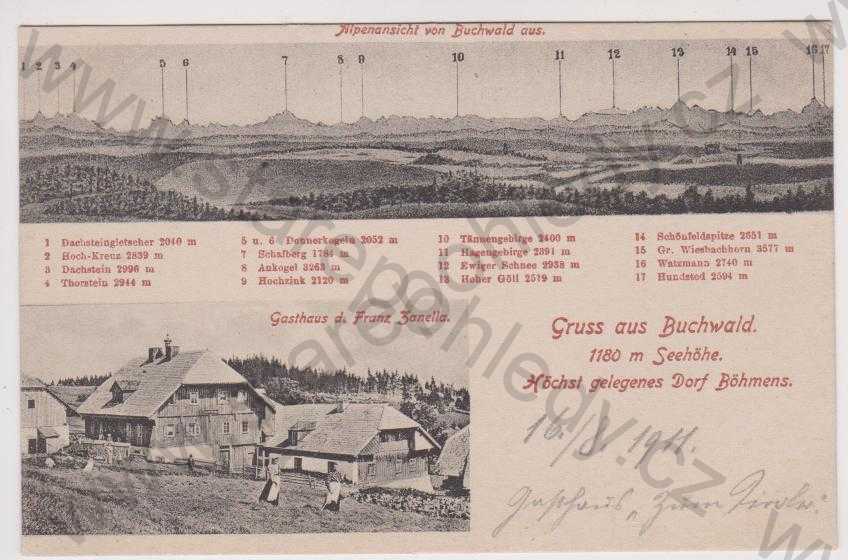 Alpenansicht von Buchwald aus.
1 2 3 4 5 6 7 8 9 10 11 12 13 14 15 16 17
1 Dachsteingletscher 2040 m
2 Hoch-Kreuz 2839 m
3 Dachstein 2996 m
4 Thorstein 2944 m
5 u. 6 Donnerkogeln 2052 m
7 Schafberg 1784 m
8 Ankogel 3263 m
9 Hochzink 2120 m
10 Tännengebirge 2400 m
11 Hagengebirge 2391 m
12 Ewiger Schnee 2938 m
13 Hoher Göll 2519 m
14 Schönfeldspitze 2651 m
15 Gr. Wiesbachhorn 3577 m
16 Watzmann 2740 m
17 Hundstod 2594 m
Gasthaus d. Franz Zanella.
Gruss aus Buchwald.
1180 m Seehöhe.
Höchst gelegenes Dorf Böhmens.
16./8. 1911.
Gasthaus „Zum Tiroler".
www.starepohledy.cz